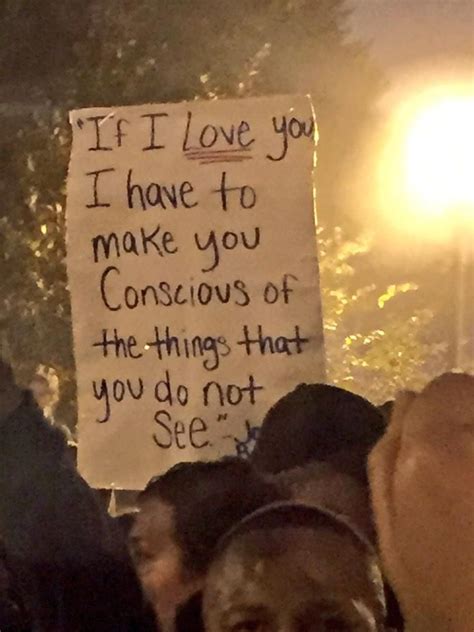 "If I Love you
I have to
make you
Conscious of
the things that
you do not
See."